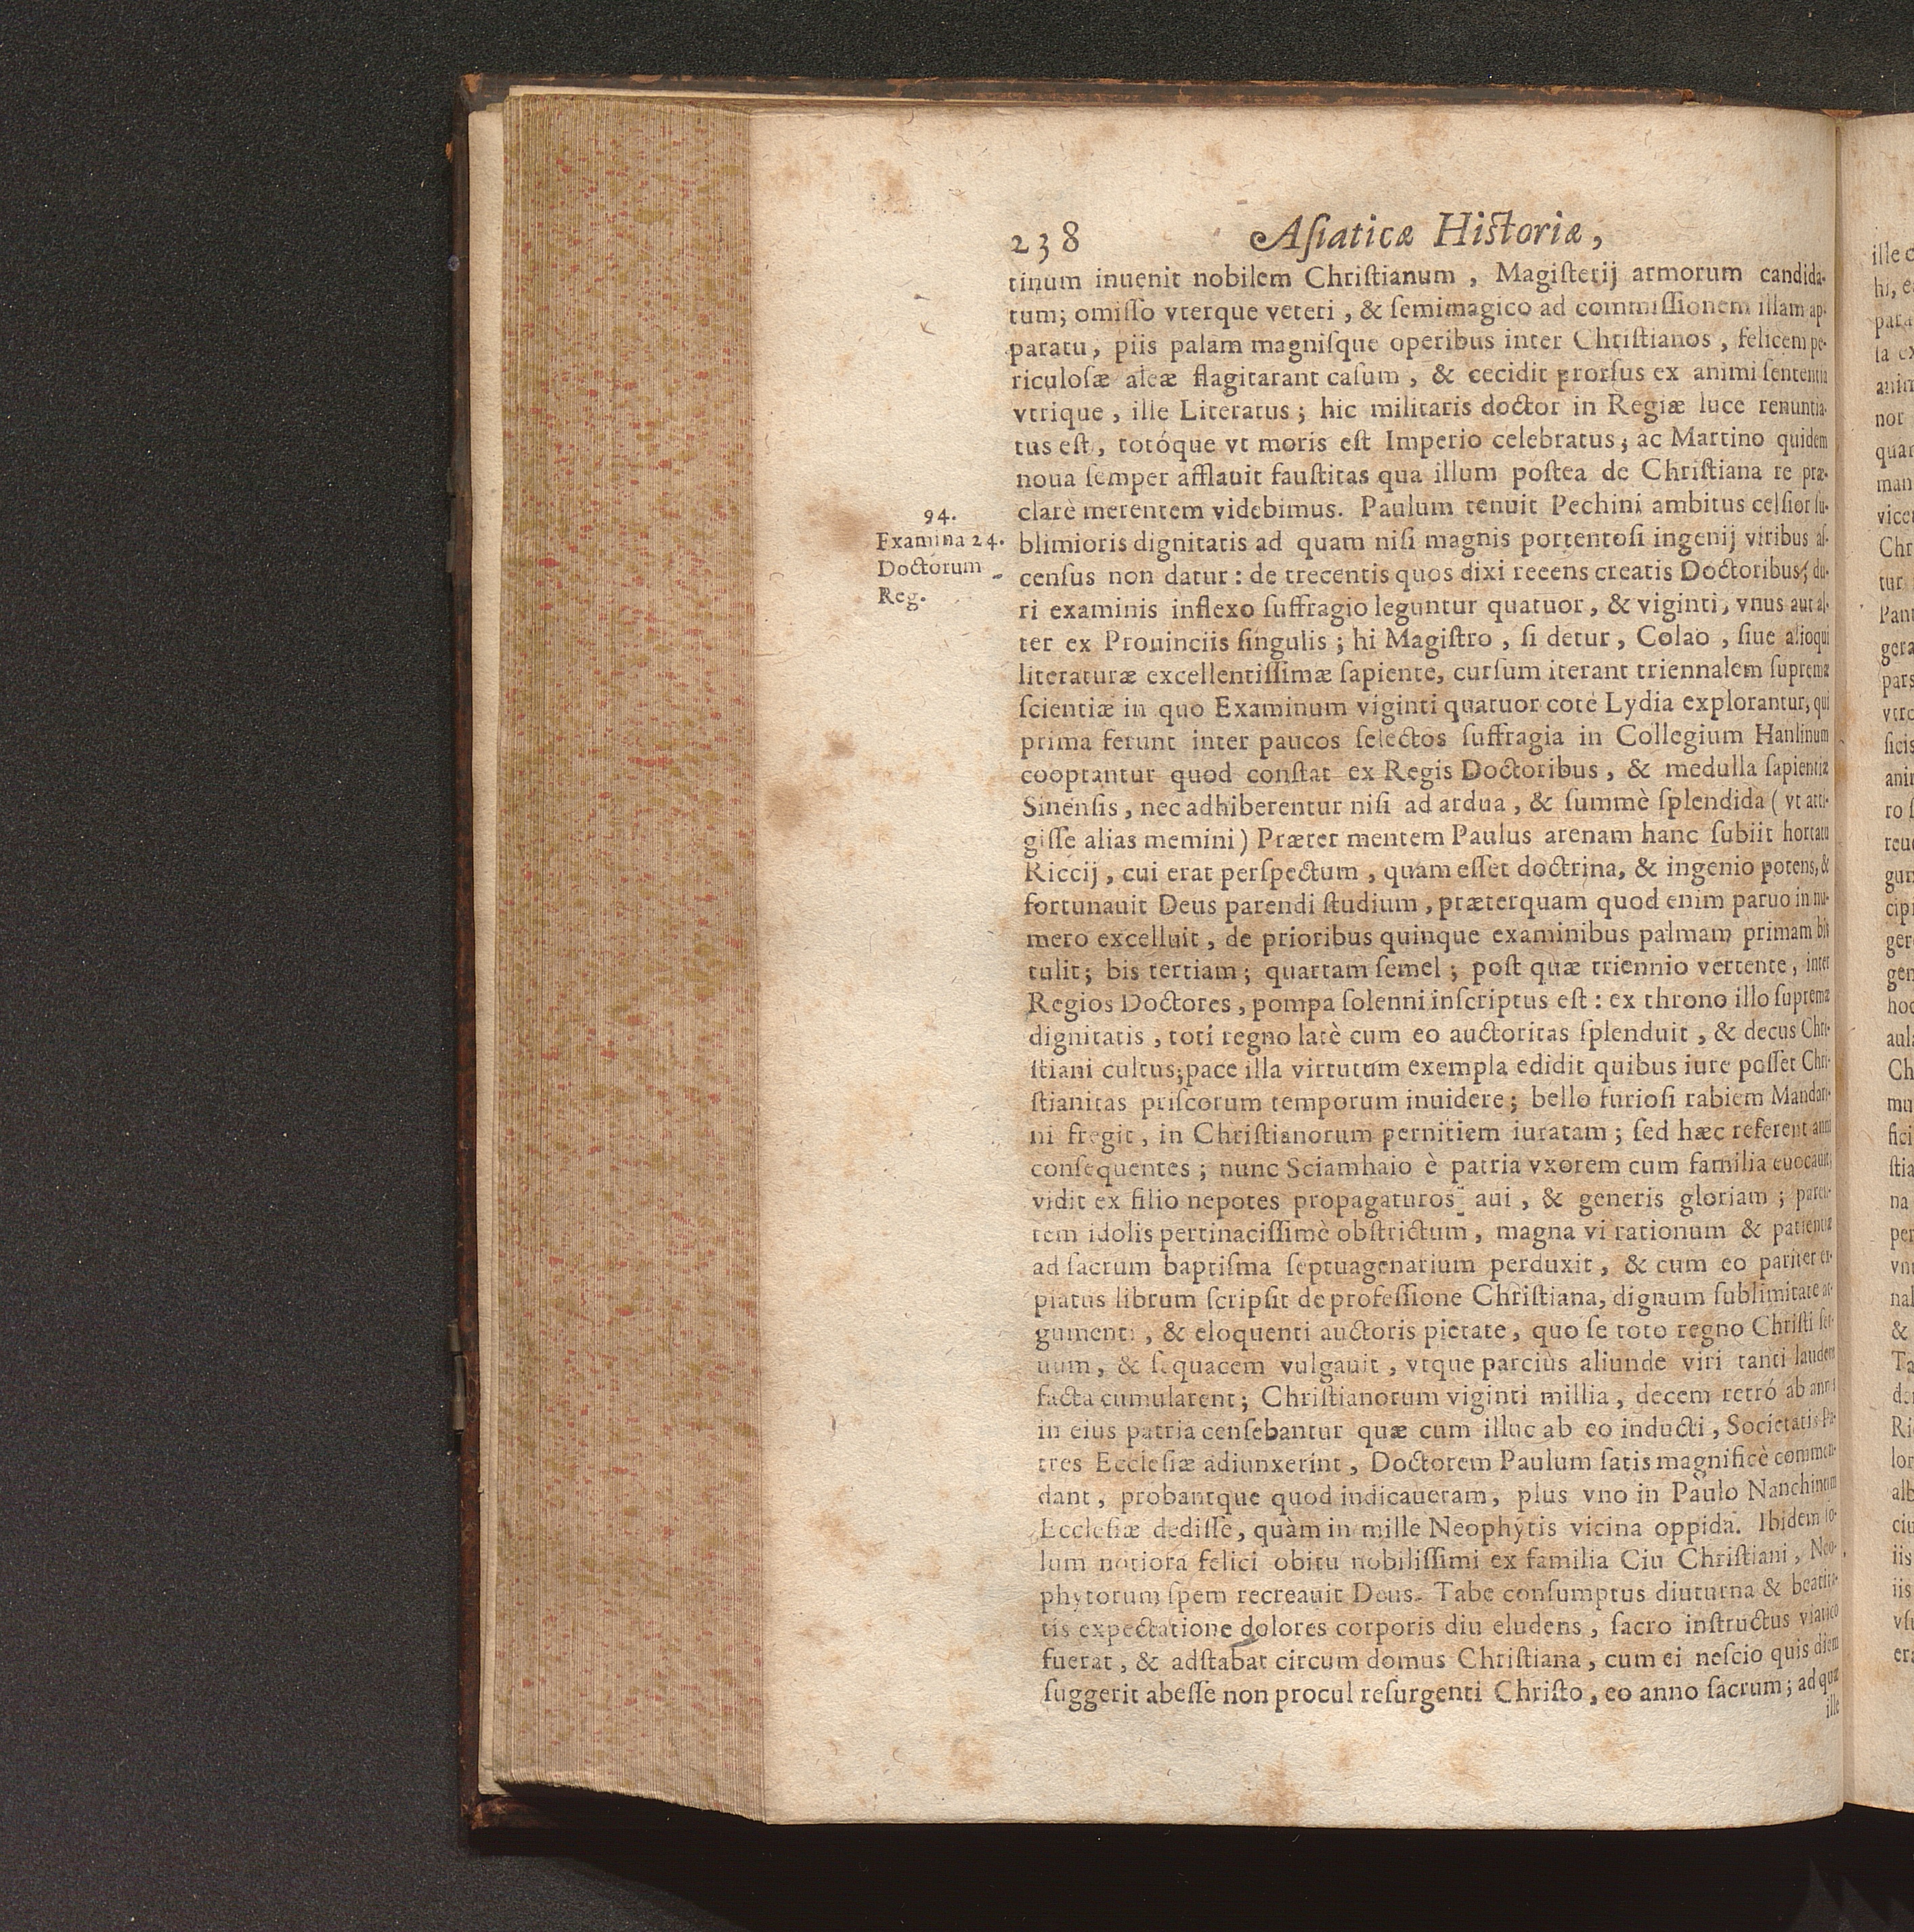 238 Asiaticæ Historiæ,
tinum inuenit nobilem Christianum, Magisterij armorum candida-
tum; omisso vterque veteri, & semimagico ad commissionem illam ap-
paratu, piis palàm magnisque operibus inter Christianos, felicem pe-
riculosæ aleæ flagitarant casum, & cecidit prorsus ex animi sententia
vtrique, ille Literatus; hic militaris doctor in Regiæ luce renuntia-
tus est, totóque vt moris est Imperio celebratus; ac Martino quidem
noua semper afflauit faustitas qua illum postea de Christiana re præ-
clarè merentem videbimus. Paulum tenuit Pechini ambitus celsior su-
94.
Examina 24.
Doctorum
Reg.
blimioris dignitatis ad quam nisi magnis portentosi ingenij viribus as-
census non datur: de trecentis quos dixi recens creatis Doctoribus, du-
ri examinis inflexo suffragio leguntur quatuor, & viginti, vnus aut al-
ter ex Prouinciis singulis; hi Magistro, si detur, Colao, siue alioqui
literaturæ excellentissimæ sapiente, cursum iterant triennalem supremæ
scientiæ in quo Examinum viginti quatuor cote Lydia explorantur, qui
prima ferunt inter paucos selectos suffragia in Collegium Hanlinum
cooptantur quod constat ex Regis Doctoribus, & medulla sapientiæ
Sinensis, nec adhiberentur nisi ad ardua, & summè splendida (vt atti-
gisse alias memini) Præter mentem Paulus arenam hanc subiit hortatu
Riccij, cui erat perspectum, quam esset doctrina, & ingenio potens, &
fortunauit Deus parendi studium, præterquam quod enim paruo in nu-
mero excelluit, de prioribus quinque examinibus palmam primam bis
tulit; bis tertiam; quartam semel; post quæ triennio vertente, inter
Regios Doctores, pompa solenni inscriptus est: ex throno illo supremæ
dignitatis, toti regno latè cum eo auctoritas splenduit, & decus Chri-
stiani cultus; pace illa virtutum exempla edidit quibus iure posset Chri-
stianitas priscorum temporum inuidere; bello furiosi rabiem Mandari-
ni fregit, in Christianorum pernitiem iuratam; sed hæc referent anni
consequentes; nunc Sciamhaio è patria vxorem cum familia euocauit,
vidit ex filio nepotes propagaturos aui, & generis gloriam; paren-
tem idolis pertinacissimè obstrictum, magna vi rationum & patientiæ
ad sacrum baptisma septuagenarium perduxit, & cum eo pariter ex-
piatus librum scripsit de professione Christiana, dignum sublimitate ar-
gumenti, & eloquenti auctoris pietate, quo se toto regno Christi ser-
uum, & sequacem vulgauit, vtque parciùs aliunde viri tanti laudem
facta cumularent; Christianorum viginti millia, decem retró ab annis
in eius patria censebantur quæ cum illuc ab eo inducti, Societatis Pa-
tres Ecclesiæ adiunxerint, Doctorem Paulum satis magnificè commen-
dant, probantque quod indicaueram, plus vno in Paulo Nanchinum
Ecclesiæ dedisse, quàm in mille Neophytis vicina oppida. Ibidem so-
lum notiora felici obitu nobilissimi ex familia Ciu Christiani, Neo-
phytorum spem recreauit Deus. Tabe consumptus diuturna & beatita-
tis expectatione dolores corporis diu eludens, sacro instructus viatico
fuerat, & adstabat circum domus Christiana, cum ei nescio quis diem
suggerit abesse non procul resurgenti Christo, eo anno sacrum; ad quæ
ille